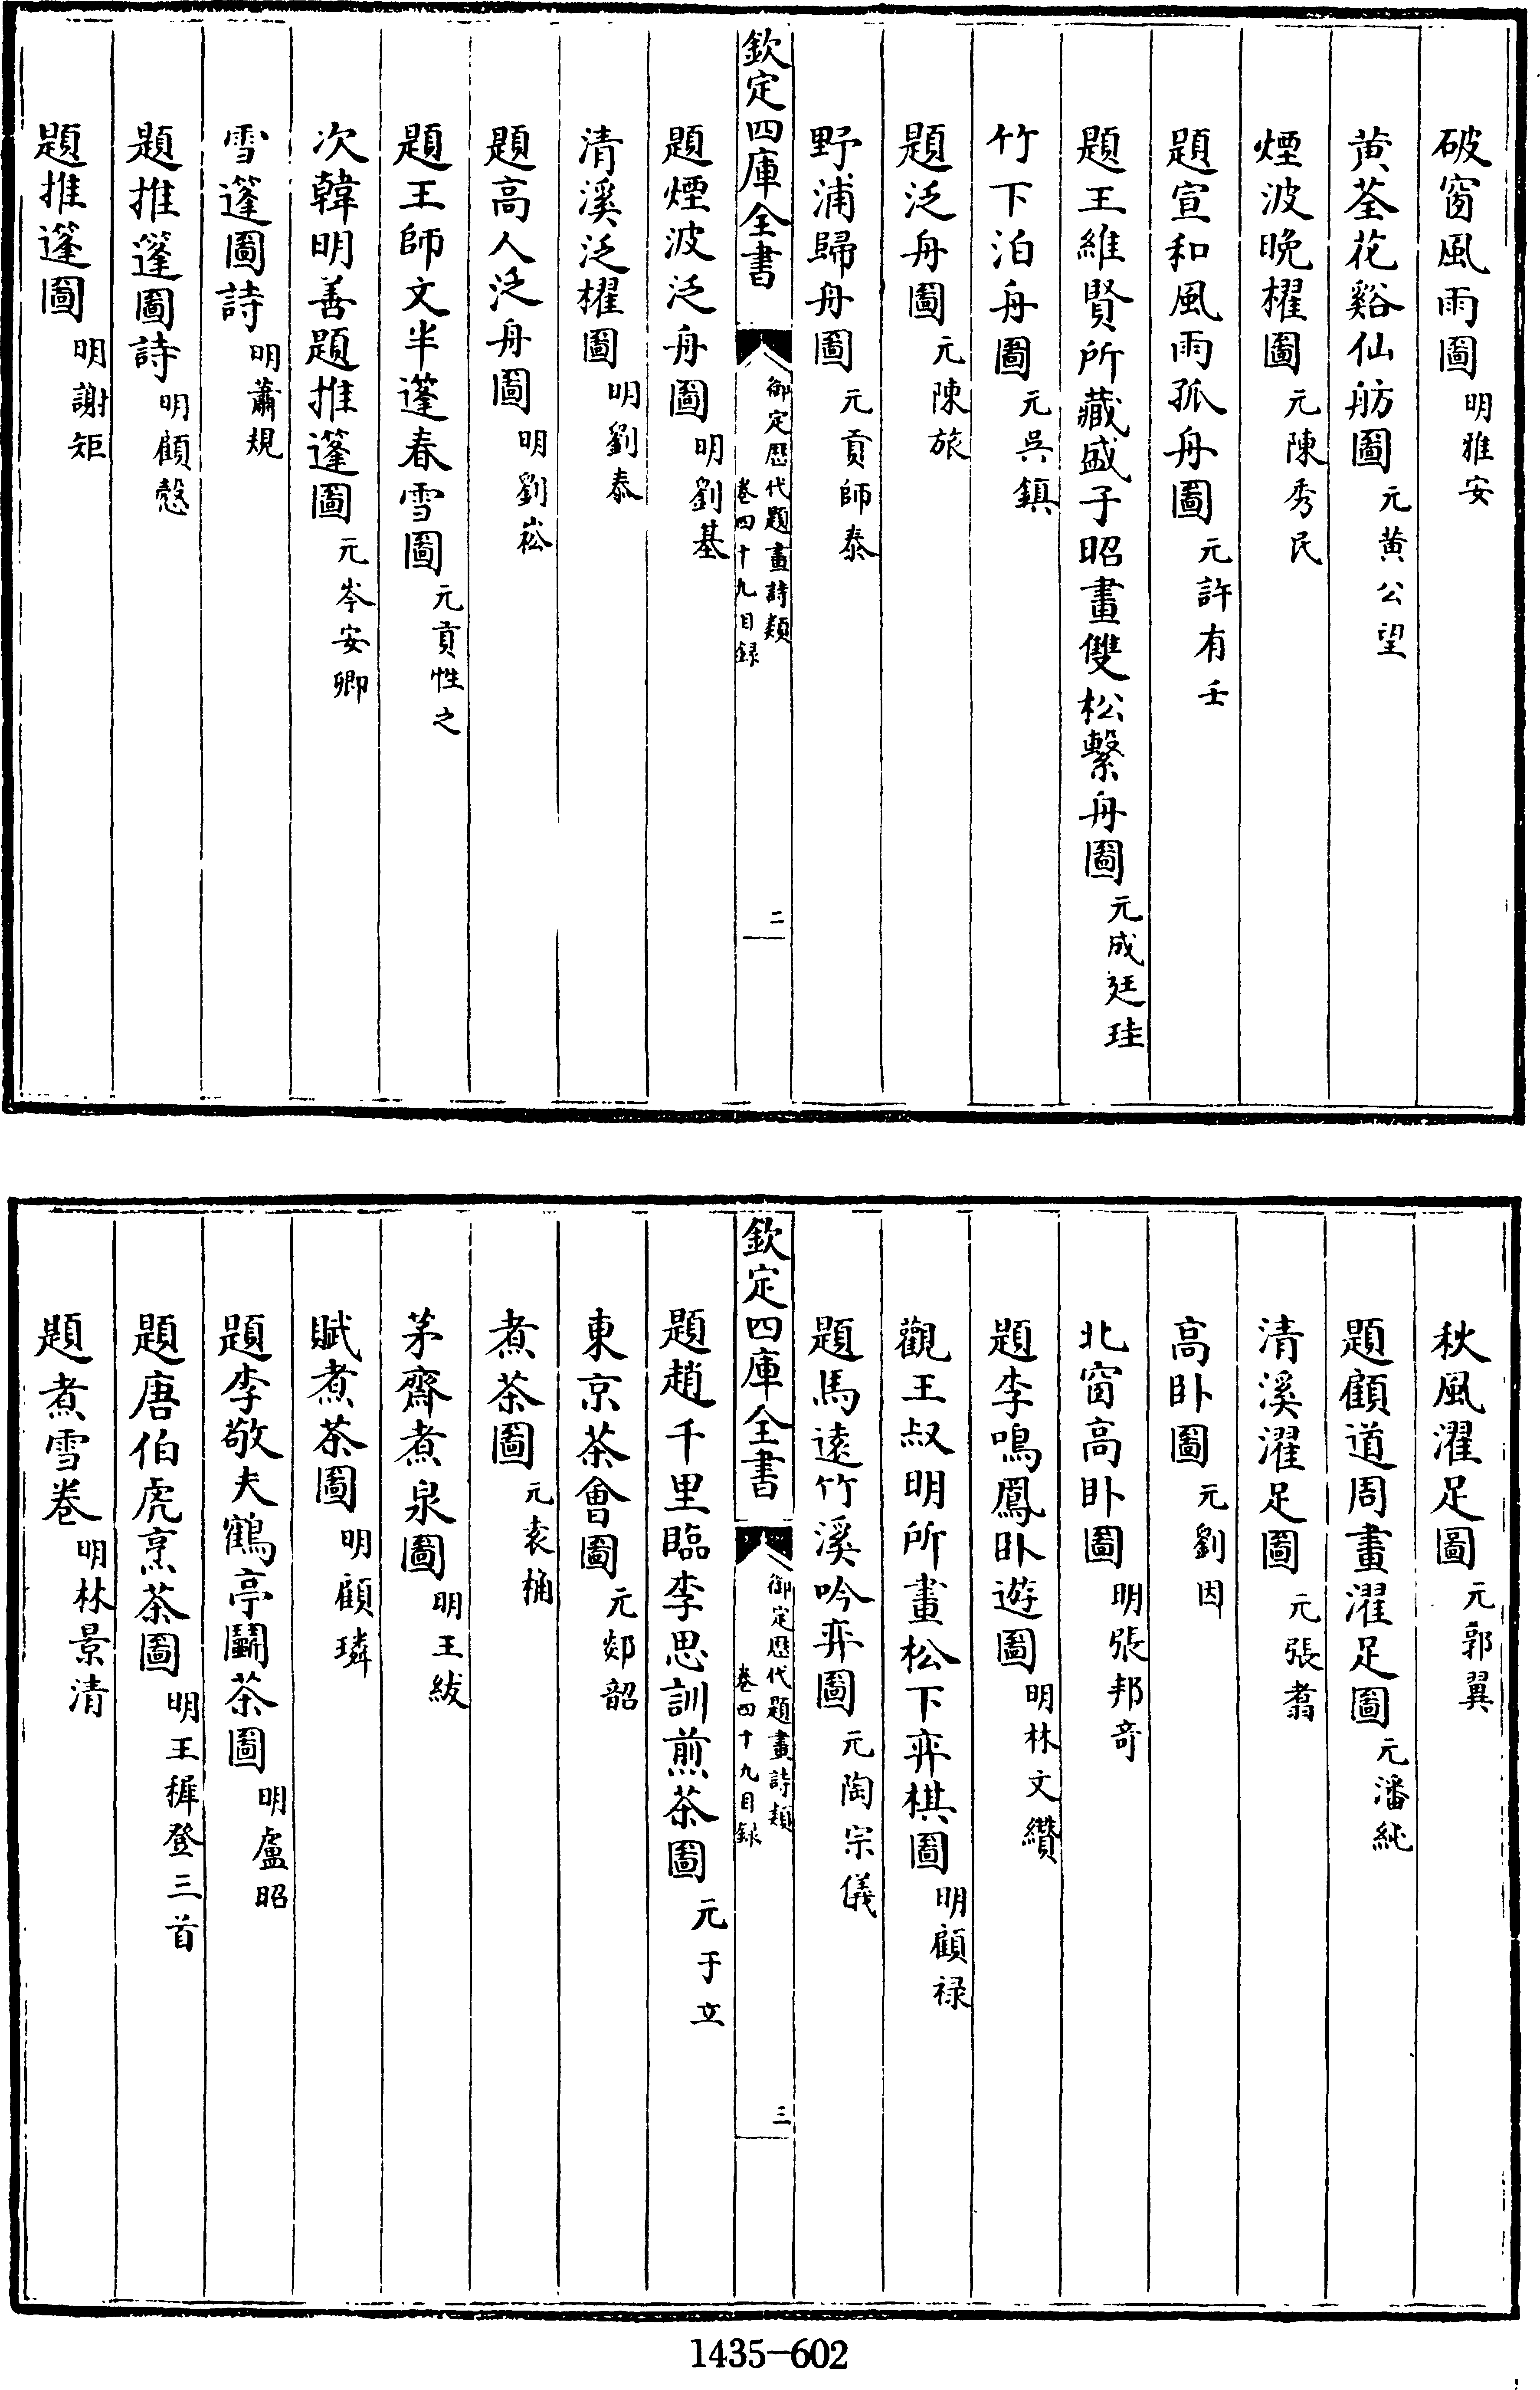 破窗風雨圖 明雅安
黄荃花谿仙舫圖 元黄公望
煙波晚櫂圖 元陳秀民
題宣和風雨孤舟圖 元許有壬
題王維賢所藏盛子昭畫雙松繫舟圖 元成廷珪
竹下泊舟圖 元吳鎮
題泛舟圖 元陳旅
野浦歸舟圖 元貢師泰
欽定四庫全書
御定歷代題畫詩類
卷四十九目録
二
題煙波泛舟圖 明劉基
清溪泛櫂圖 明劉泰
題高人泛舟圖 明劉崧
題王師文半篷春雪圖 元貢性之
次韓明善題推篷圖 元岑安卿
雪篷圖詩 明蕭規
題推篷圖詩 明顧愨
題推篷圖 明謝矩
秋風濯足圖 元郭翼
題顧道周畫濯足圖 元潘純
清溪濯足圖 元張翥
高卧圖 元劉因
北窗高卧圖 明張邦奇
題李鳴鳳卧遊圖 明林文纘
觀王叔明所畫松下弈棋圖 明顧禄
題馬遠竹溪吟弈圖 元陶宗儀
欽定四庫全書
御定歷代題畫詩類
卷四十九目録
三
題趙千里臨李思訓煎茶圖 元于立
東京茶會圖 元郯韶
煮茶圖 元袁桷
茅齋煮泉圖 明王紱
賦煮茶圖 明顧璘
題李敬夫鶴亭鬭茶圖 明盧昭
題唐伯虎烹茶圖 明王穉登三首
題煮雪卷 明林景清
1435-602